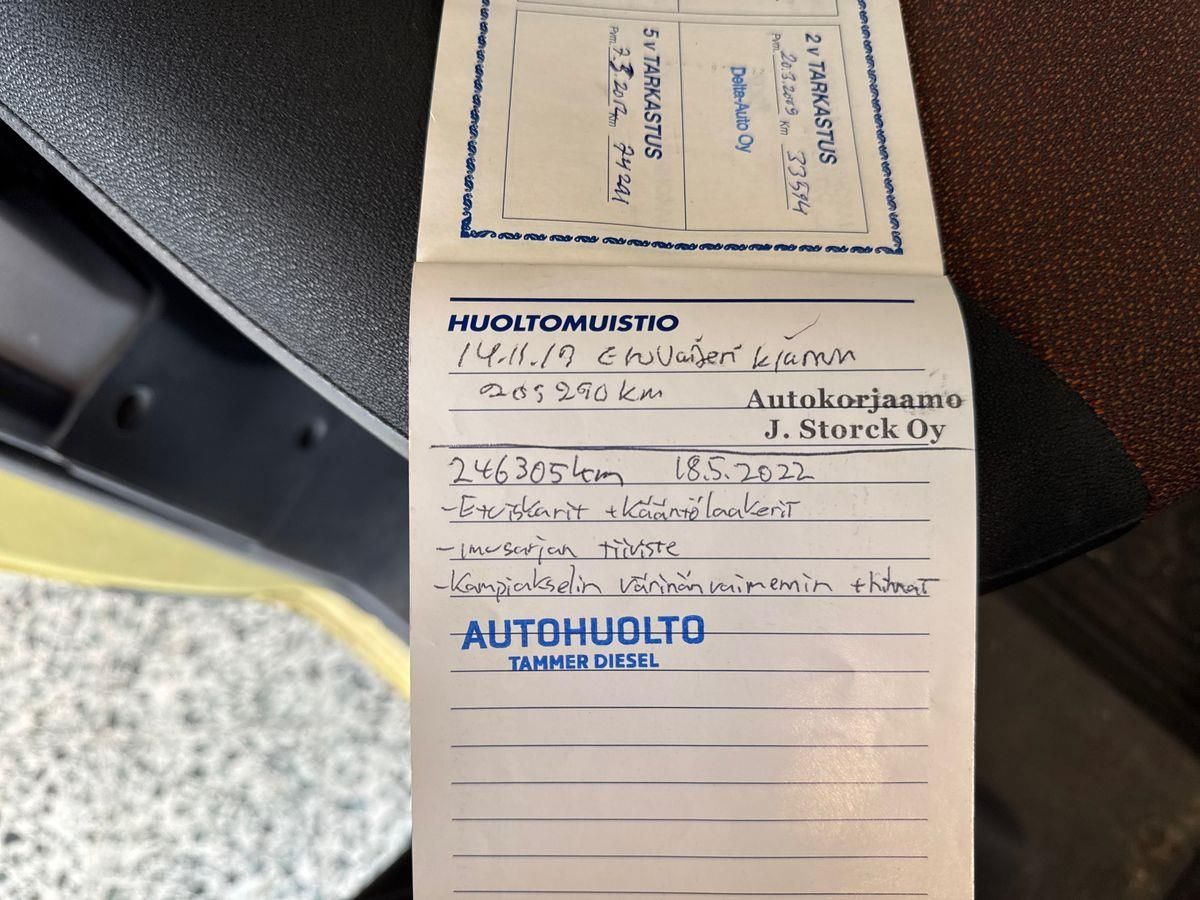 2 v TARKASTUS
Pvm. 20.3.2009 Km 33594
Delta-Auto Oy
5 v TARKASTUS
Pvm. 7.3.2012 Km 74291
HUOLTOMUISTIO
14.11.19 Etuvaijeri
205290 km
Autokorjaamo
J. Storck Oy
246305 km 18.5.2022
-Etuiskarit + kääntölaakerit
-imusarjan tiiviste
-Kampiakselin värinänvaimemin + hihnat
AUTOHUOLTO
TAMMER DIESEL